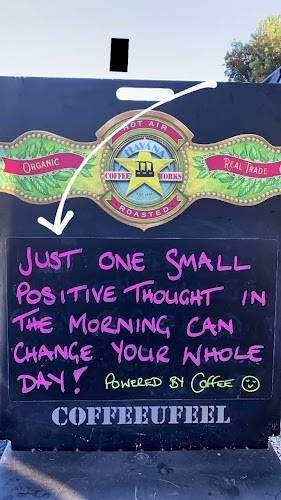 HOT AIR
HAVANA
COFFEE WORKS
ORGANIC
REAL TRADE
ROASTED
JUST ONE SMALL
POSITIVE THOUGHT IN
THE MORNING CAN
CHANGE YOUR WHOLE
DAY! POWERED BY COFFEE
COFFEEUFEEL